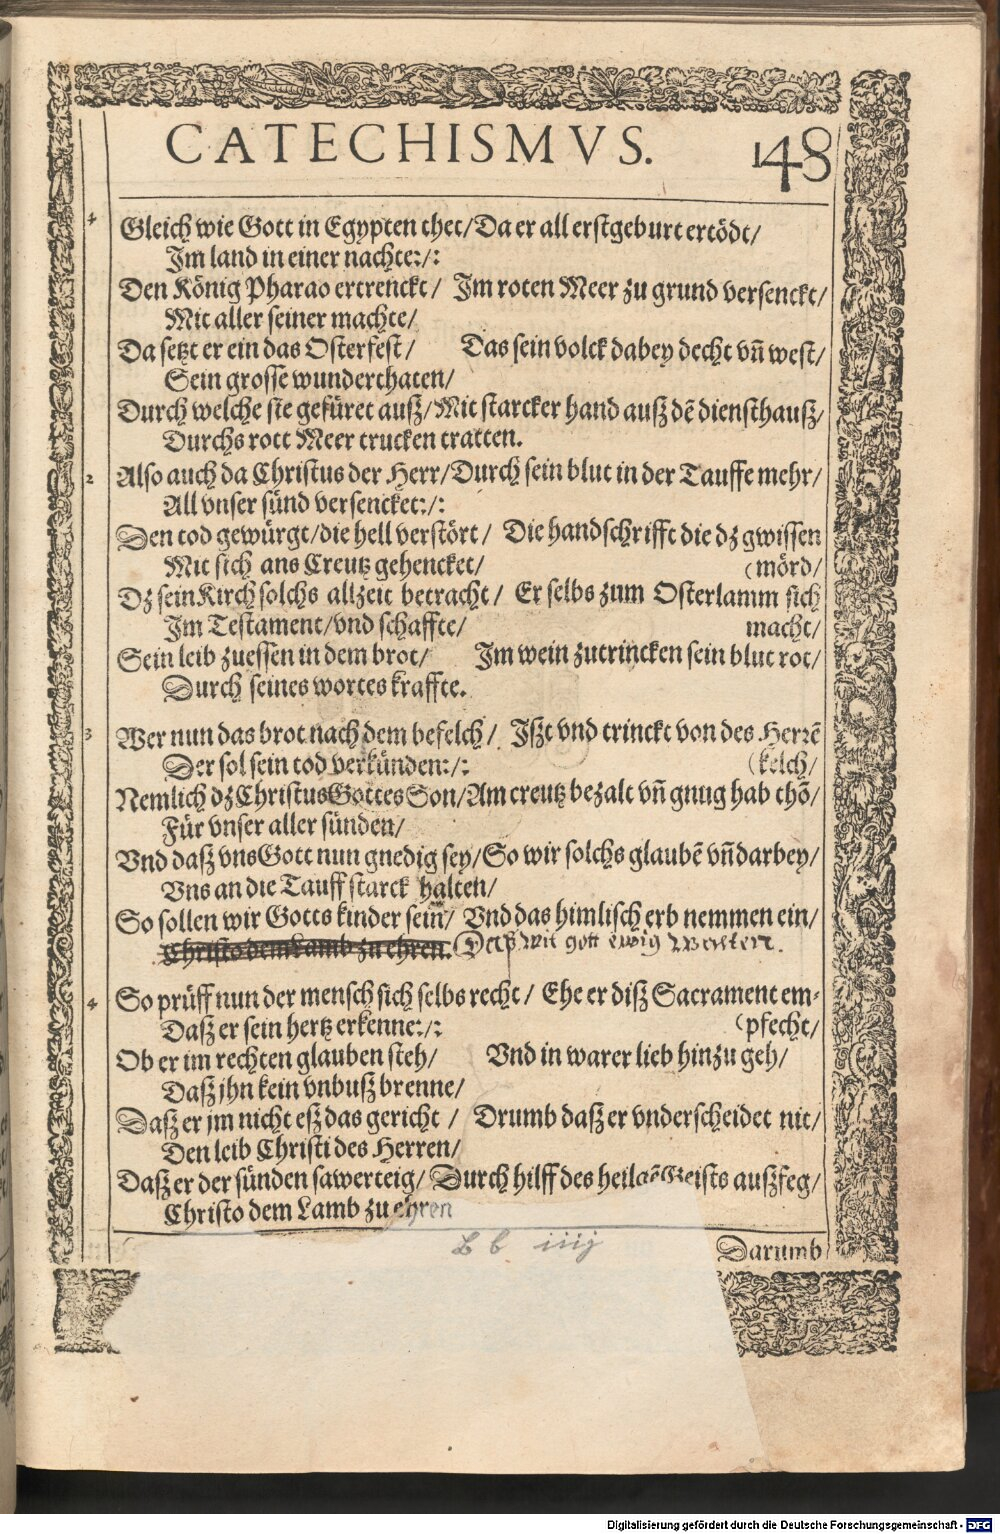 CATECHISMVS. 148
1 Gleich wie Gott in Egypten thet/Da er all erstgeburt ertödt/
Im land in einer nachte:/:
Den König Pharao ertrenckt/ Im roten Meer zu grund versenckt/
Mit aller seiner machte/
Da setzt er ein das Osterfest/ Das sein volck dabey decht vn̄ west/
Sein grosse wunderthaten/
Durch welche sie gefüret ausz/Mit starcker hand ausz dē diensthausz/
Durchs rott Meer trucken tratten.
2 Also auch da Christus der Herr/Durch sein blut in der Tauffe mehr/
All vnser sünd versencket:/:
Den tod gewürgt/die hell verstört/ Die handschrifft die dz gwissen
Mit sich ans Creutz gehencket/ (mörd/
Dz sein Kirch solchs allzeit betracht/ Er selbs zum Osterlamm sich
Im Testament/vnd schaffte/ macht/
Sein leib zuessen in dem brot/ Im wein zutrincken sein blut rot/
Durch seines wortes kraffte.
3 Wer nun das brot nach dem befelch/ Iszt vnd trinckt von des Herrē
Der sol sein tod verkünden:/: (kelch/
Nemlich dz Christus Gottes Son/Am creutz bezalt vn̄ gnug hab thō/
Für vnser aller sünden/
Vnd dasz vns Gott nun gnedig sey/So wir solchs glaubē vn̄ darbey/
Vns an die Tauff starck halten/
So sollen wir Gotts kinder sein/ Vnd das himlisch erb nemmen ein/
Christo dem Lamb zu ehren. Desz wil gott ewig walten.
4 So prüff nun der mensch sich selbs recht/ Ehe er disz Sacrament em-
Dasz er sein hertz erkenne:/: (pfecht/
Ob er im rechten glauben steh/ Vnd in warer lieb hinzu geh/
Dasz jhn kein vnbusz brenne/
Dasz er jm nicht esz das gericht/ Drumb dasz er vnderscheidet nit/
Den leib Christi des Herren/
Dasz er der sünden sawerteig/ Durch hilff des heilgē Geists auszfeg/
Christo dem Lamb zu ehren
Bb iiij Darumb
Digitalisierung gefördert durch die Deutsche Forschungsgemeinschaft - DFG